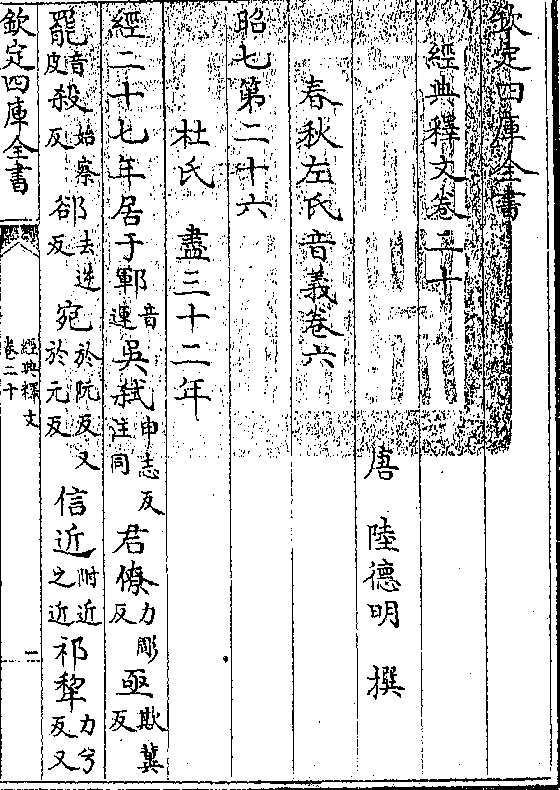 欽定四庫全書
經典釋文卷二十
唐 陸德明 撰
春秋左氏音義卷六
昭七第二十六
杜氏 盡三十二年
經二十七年居于鄆音運吳弒申志反注同君僚力彫反亟欺冀反
罷音皮殺始察反郤去逆反宛於阮反又於元反信近附近之近祁犂力兮反又
欽定四庫全書
經典釋文
卷二十
一